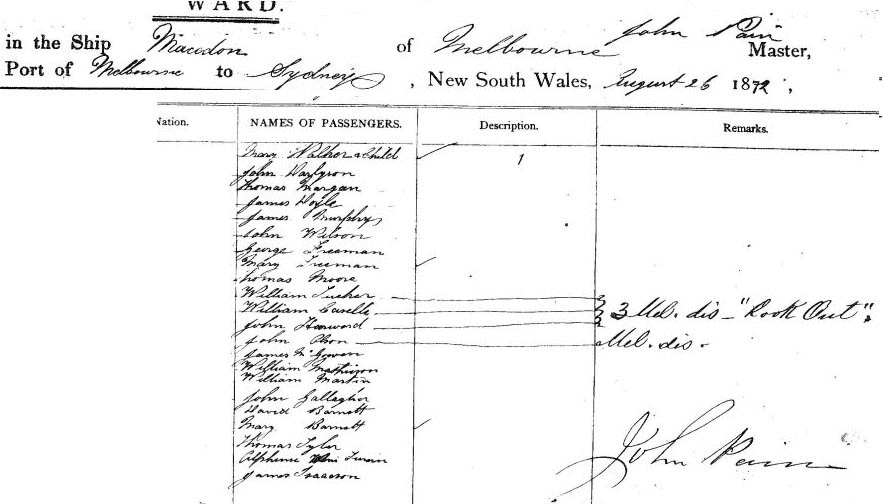 WARD.
in the Ship Macedon of Melbourne John Pain Master,
Port of Melbourne to Sydney, New South Wales, August 26 1872,
NAMES OF PASSENGERS. Description. Remarks.
Mary Walker & Child 1
John
Thomas Margan
James Doyle
James Murphy
John Wilson
George Freeman
Mary Freeman
Thomas Moore
William Tucker
William Caselle 3 Mel. dis - "Look Out".
John Harward
John Olson Mel. dis.
James McGowen
William Mathieson
William Martin
John Gallagher
David Barnett
Mary Barnett
Thomas Tyler
Alphonse
James Isaacson
John Pain